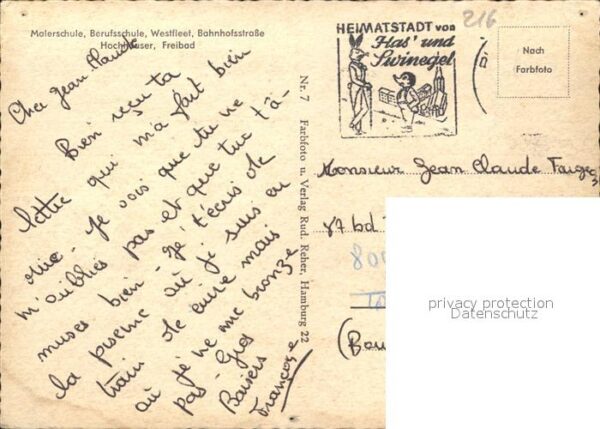 Malerschule, Berufsschule, Westfleet, Bahnhofsstraße
Hochhäuser, Freibad
Cher Jean Claude
Bien reçu ta
lettre qui m'a fait bien
Je vois que tu ne
m'oublies pas et que tu t'a-
muses bien - Je t'écris de
la piscine où je suis en
train de cuire mais
où je ne me bronze
pas - Gros
Baisers
Françoise
Nr. 7 Farbfoto u. Verlag Rud. Reher, Hamburg 22
216
HEIMATSTADT von
Has' und
Swinegel
Nach
Farbfoto
Monsieur Jean Claude
87 bd
800
(Bou
privacy protection
Datenschutz